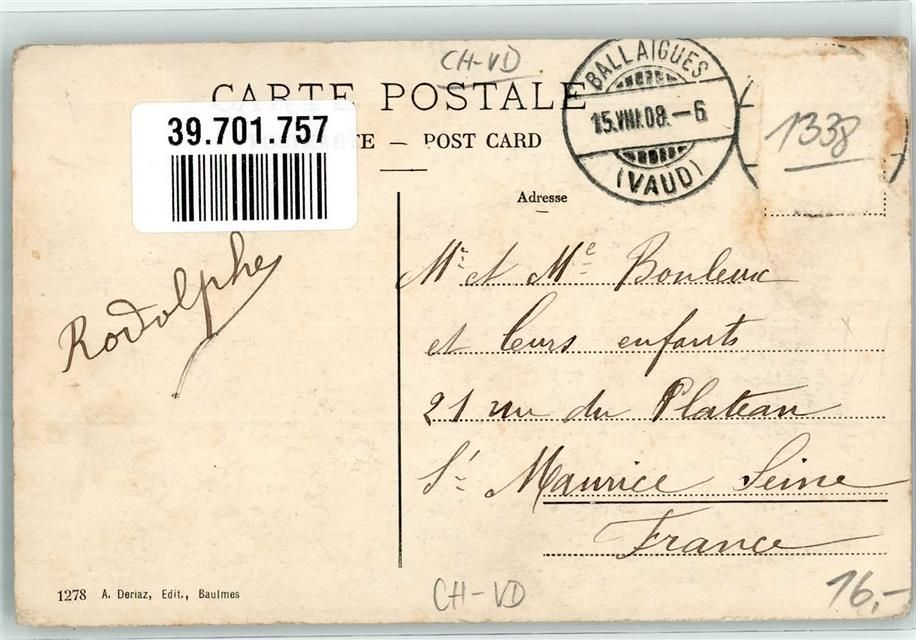 CH-VD
CARTE POSTALE
— POST CARD
39.701.757
BALLAIGUES
15.VIII.08.—6
(VAUD)
1338
Adresse
Rodolphe
Mr et Me Bouleux
et leurs enfants
21 rue du Plateau
St Maurice Seine
France
1278 A. Deriaz, Edit., Baulmes
CH-VD
16,-